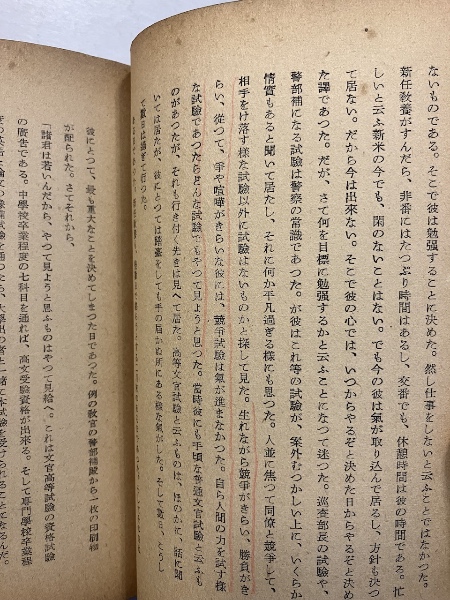 ないものである。そこで彼は勉強することに決めた。然し仕事をしないと云ふことではなかつた。
新任教養がすんだら、非番にはたつぷり時間はあるし、交番でも、休憩時間は彼の時間である。忙
しいと云ふ新米の今でも、閑のないことはない。でも今の彼は氣が取り込んで居るし、方針も決つ
て居ない。だから今は出來ない。そこで彼の心では、いつからやるぞと決めた日からやるぞと決め
た譯であつた。だが、さて何を目標に勉強するかと云ふことになつて迷つた。巡査部長の試驗や、
警部補になる試驗は警察の常識であつた。が彼はこれ等の試驗が、案外むつかしい上に、いくらか
情實もあると聞いて居たし、それに何か平凡過ぎる様にも思つた。人並に焦つて同僚と競爭して、
相手をけ落す樣な試驗以外に試驗はないものかと探して見た。生れながら競爭がきらい、勝負がき
らい、從つて、爭や喧嘩がきらいな彼には、競爭試驗は氣が進まなかつた。自ら人間の力を試す様
な試驗であつたらどんな試驗でもやつて見ようと思つた。當時彼にも手頃な普通文官試驗と云ふも
のがあつたが、それも行き付く先きは見へて居た。高等文官試驗と云ふものは、ほのかに、話に聞
いては居たが、彼にとつては
て數日は過ぎて行つた。
彼にとつて、最も重大なことを決めてしまつた日であつた。例の教官の警部補殿から一枚の印刷物
が配られた。さてそれから、
「諸君は若いんだから、やつて見ようと思ふものはやつて見給へ。これは文官高等試驗の資格試驗
の廣告である。中學校卒業程度の七科目を通れば、高文受驗資格が出來る。そして專門學校卒業程